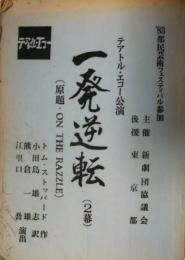 '83都民芸術フェスティバル参加
主催 新劇団協議会
後援 東京都
テアトル・エコー公演
一発逆転(2幕)
(原題・ON THE RAZZLE)
トム・ストッパード 作
小田島雄志 訳
熊倉一雄 演出
テアトル・エコー